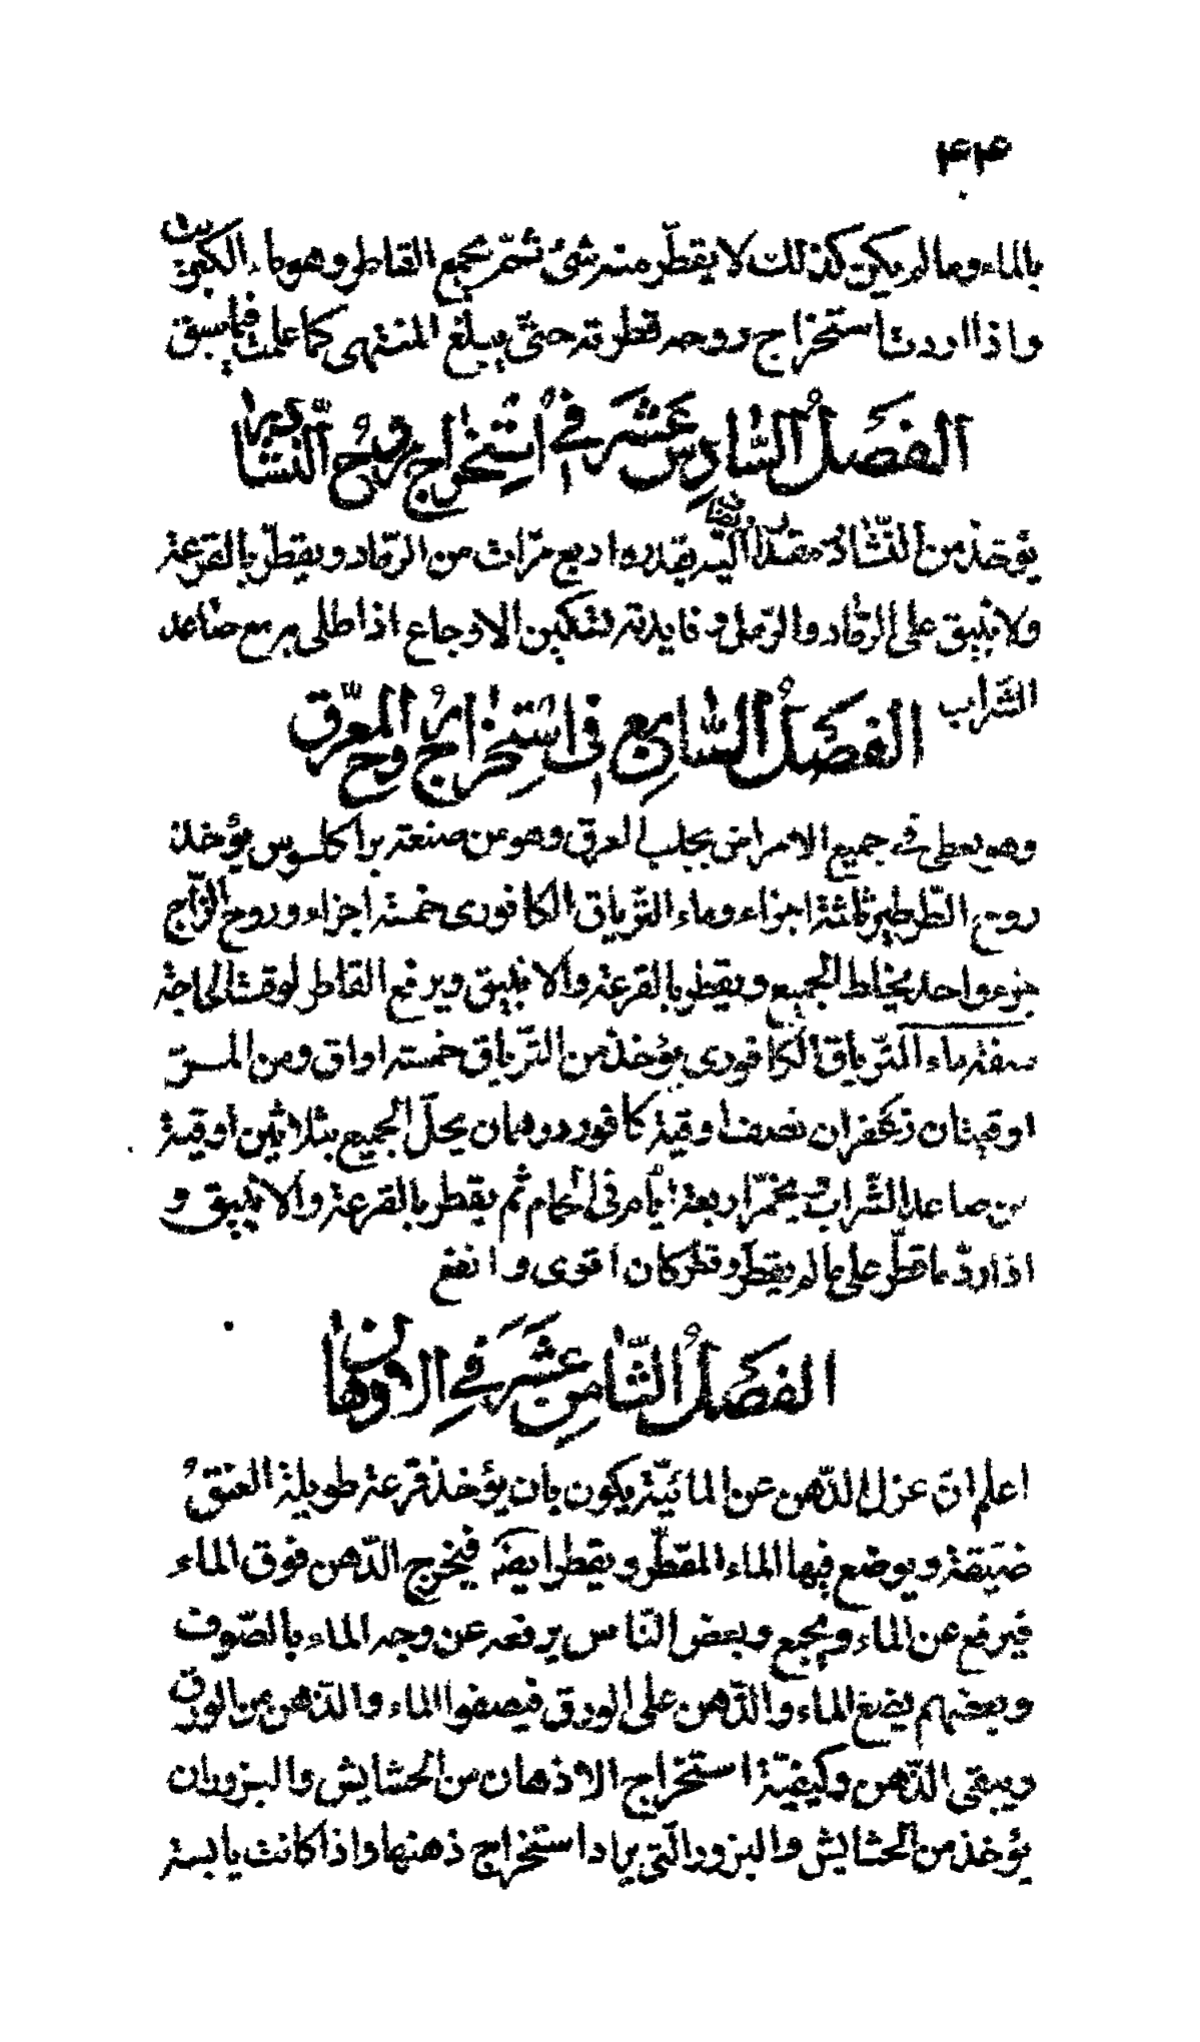 ۴۴
بالماء وما لم يكن كذلك لا يقطّر منه شئ ثمّ يجمع القاطر وهو ماء الكبريت
واذا اردت استخراج روحه قطرته حتّى يبلغ المنتهى كما علمت فيما سبق
الفصل السادس عشر في استخراج روح النشادر
يؤخذ من النّشادر مقدار ويضاف اليه بقدره اربع مرّات من الرّماد ويقطّر بالقرعة
ولانبيق على الرماد والرّمل وفايدته تسكين الاوجاع اذا طلى به مع صاعد
الشّراب
الفصل السّابع في استخراج روح المعرّق
وهو يعطى في جميع الامراض يجلب العرق وهو من صنعة براكلسوس يؤخذ
روح الطّرطير ثلثة اجزاء وماء التّرياق الكافورى خمسة اجزاء وروح الزّاج
جزء واحد يخلط الجميع ويقطر بالقرعة والانبيق ويرفع القاطر لوقت الحاجة
صفة ماء التّرياق الكافورى يؤخذ من التّرياق خمسة اواق ومن المرّ
اوقيتان زعفران نصف اوقية كافور درهمان يحلّ الجميع بثلاثين اوقية
من صاعد الشّراب ويخمّر اربعة ايام في الحمام ثم يقطر بالقرعة والانبيق و
اذا ردّ ما قطّر على ما لم يقطر وقطر كان اقوى وانفع
الفصل الثّامن عشر في الادهان
اعلم انّ عزل الدّهن عن المائيّة يكون بان يؤخذ قرعة طويلة العنق
ضيّقة ويوضع فيها الماء المقطّر ويقطر ايضه فيخرج الدّهن فوق الماء
فيرفع عن الماء ويجمع وبعض النّاس يرفعه عن وجه الماء بالصّوف
وبعضهم يضع الماء والدّهن على الورق فيصفوا الماء والدّهن من الورق
ويبقى الدّهن وكيفيّة استخراج الادهان من الحشايش والبزور ان
يؤخذ من الحشايش والبزور الّتي يراد استخراج دهنها واذا كانت يابسة